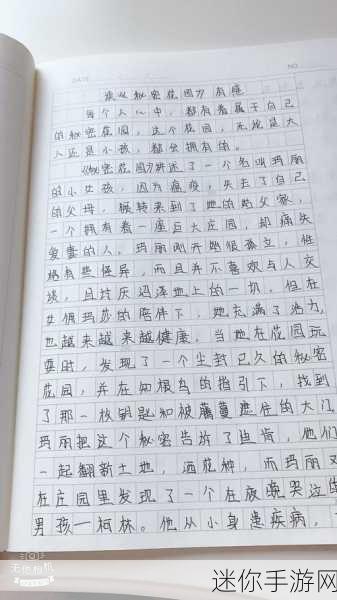 DATE
NO
读《秘密花园》有感
每个人心中，都有着属于自己
的秘密花园，这个花园，无论是大
人还是小孩，都会拥有的。
《秘密花园》讲述了一个名叫玛丽
的小女孩，因为瘟疫，失去了自己
的父母，辗转来到了她的姑父家，
一个拥有着一座巨大庄园，却痛失
爱妻的人。玛丽刚开始很孤立，性
格有些怪异，而且并不喜欢与人交
谈，且讨厌沼泽地上的一切，但在
女佣玛莎的陪伴下，她充满了活力，
也越来越来越健康。当她在花园玩
耍时，发现了一个尘封已久的秘密
花园，并在知根鸟的指引下，找到
了那一枚钥匙和被藤蔓遮住的大门
玛丽把这个秘密告诉了迪肯，他们
一起翻新土地，洒花种，而玛丽又
在庄园里发现了一个在夜晚哭泣的
男孩—柯林。他从小身患疾病，
无他相机
迷你手游网